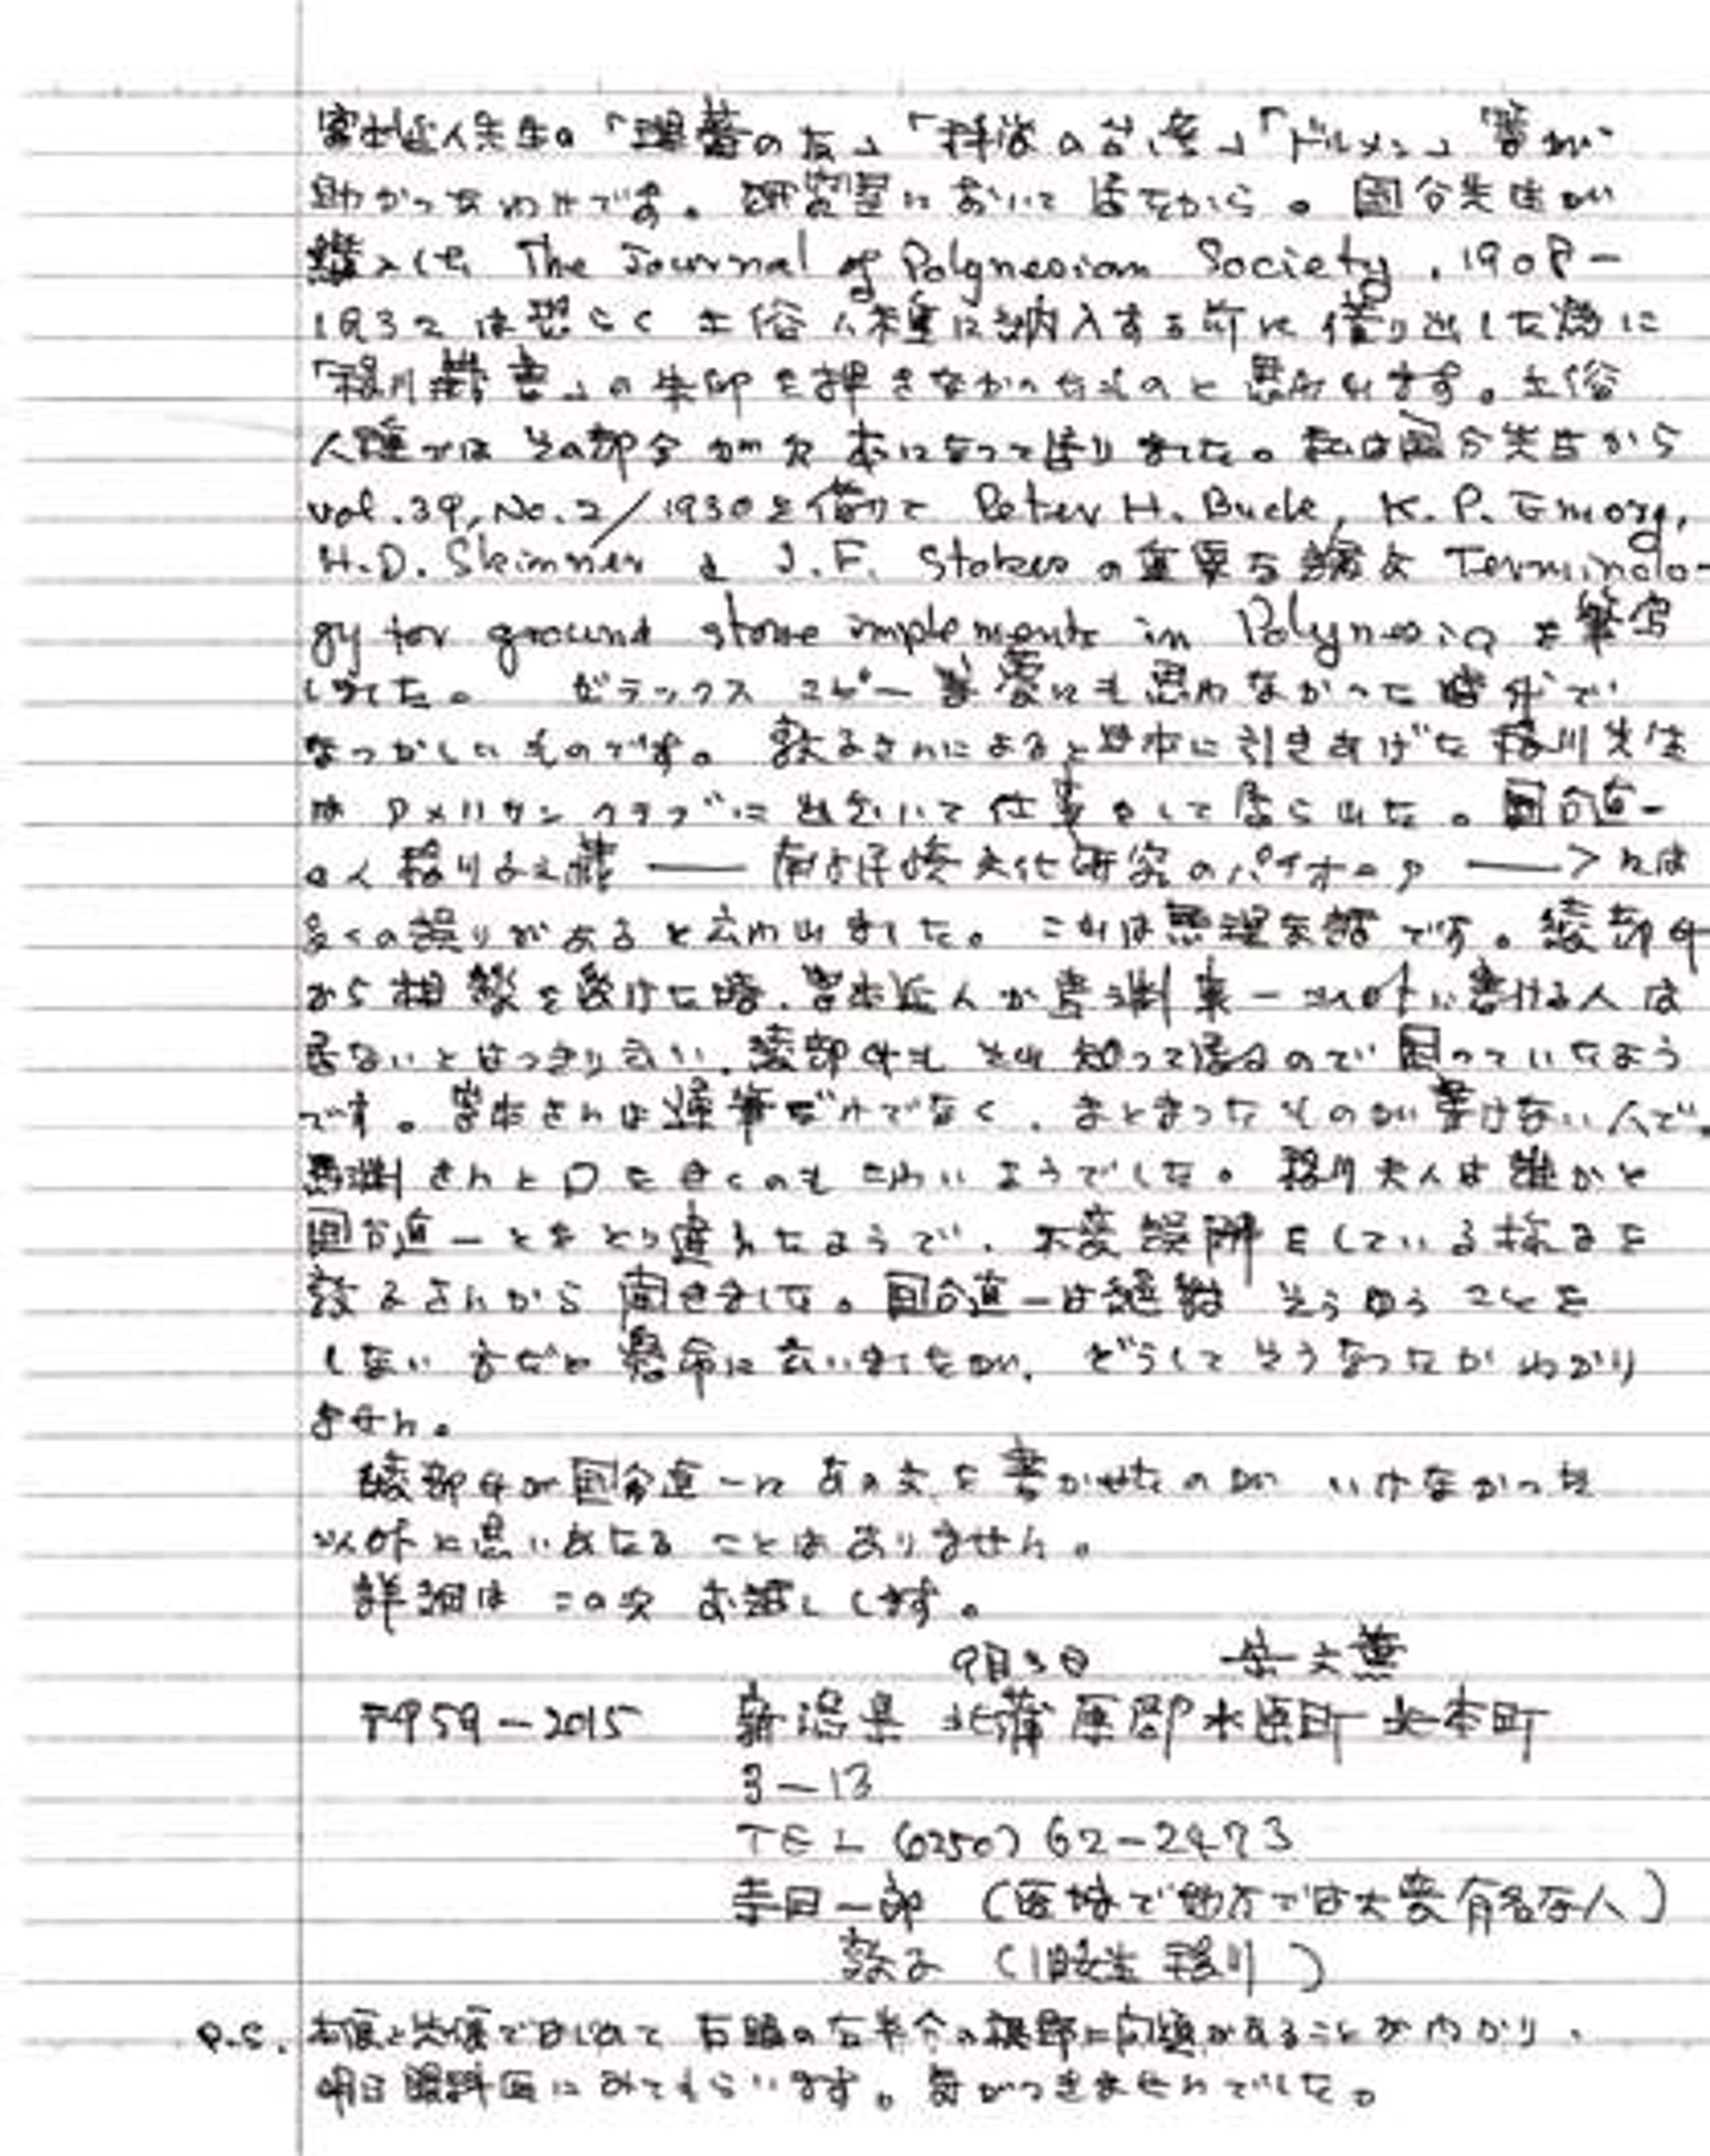 宮本延人先生の「理蕃の友」「科学の台湾」「ドルメン」等が
助かったわけです。研究室において居たから。国分先生が
購入した The Journal of Polynesian Society, 1908-
1932 は恐らく土俗人種に納入する前に借り出した為に
「移川蔵書」の朱印を押さなかったものと思われます。土俗
人種ではその部分が欠本になって居りました。私は国分先生から
vol. 39, No. 2/1930を借りて Peter H. Buck, K. P. Emory,
H. D. Skinner と J. F. Stokes の重要な論文 Terminolo-
gy for ground stone implements in Polynesia を筆写
しました。 ゼラックスコピー等夢にも思わなかった時代で
なつかしいものです。敦子さんによると日本に引きあげた移川先生
は アメリカンクラブに出むいて仕事をして居られた。国分直一
の〈移川子之蔵 ── 南方民族文化研究のパイオニア ──〉には
多くの誤りがあると云われました。これは無理な話です。綾部
から相談を受けた時、宮本延人か馬淵東一以外に書ける人は
居ないとはっきり云い、綾部 もそれ知って居るので困っていたよう
です。宮本さんは遅筆だけでなく、まとまったものが書けない人で、
馬淵さんと口をきくのもこわいようでした。移川夫人は誰かと
国分直一とをとり違えたようで、大変誤解をしている様子を
敦子さんから聞きました。国分直一は絶対そうゆうことを
しない方だと懸命に云いましたが、どうしてそうなったかわかり
ません。
綾部 が国分直一にあの文を書かせたのがいけなかった
以外に思いあたることはありません。
詳細はこの次お話しします。
9月3日
〒959-2015 新潟県北蒲原郡水原町北本町
3-13
TEL (0250) 62-2473
寺田一郎 (医 で地方では大変有名な人)
敦子 (旧姓 移川)
P.S. 右 と左 ではじめて右眼の右半分の視野に問題があることがわかり、
明日眼科医にみてもらいます。気がつきませんでした。